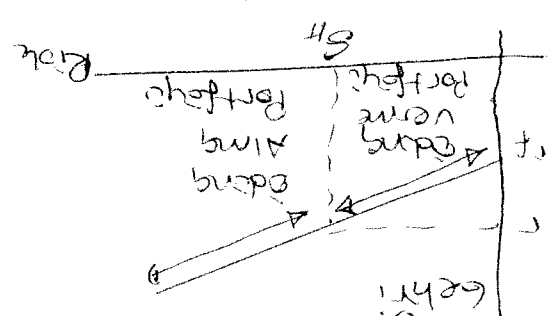 Getiri
r
rf
Ödünç
Verme
Portföyü
Ödünç
Alma
Portföyü
Risk